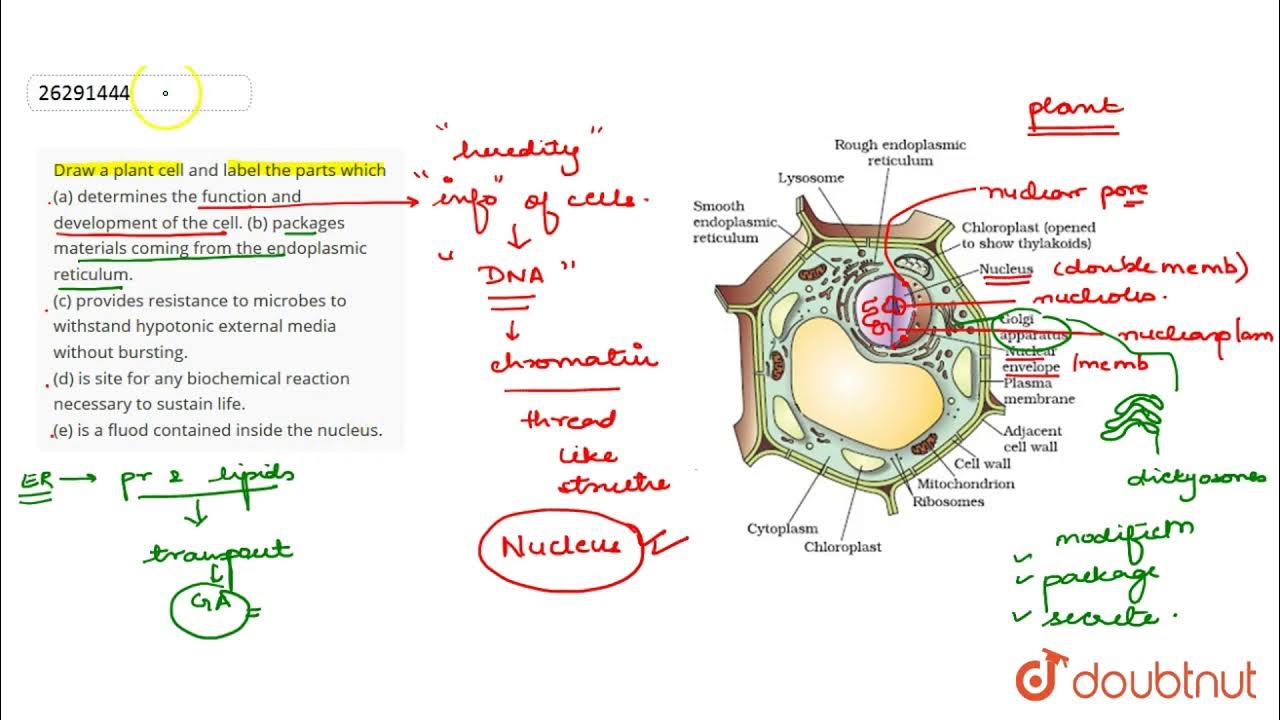 26291444
Draw a plant cell and label the parts which
(a) determines the function and
development of the cell. (b) packages
materials coming from the endoplasmic
reticulum.
(c) provides resistance to microbes to
withstand hypotonic external media
without bursting.
(d) is site for any biochemical reaction
necessary to sustain life.
(e) is a fluod contained inside the nucleus.
ER → pr & lipids
transport
GA
"heredity"
"info" of cells.
"DNA"
chromatin
thread
like
Nucleus
plant
Rough endoplasmic
reticulum
Lysosome
Smooth
endoplasmic
reticulum
nuclear pore
Chloroplast (opened
to show thylakoids)
Nucleus (double memb)
Golgi
apparatus
Nuclear
envelope /memb
Plasma
membrane
Adjacent
cell wall
Cell wall
Mitochondrion
Ribosomes
Cytoplasm
Chloroplast
package
secrete.
doubtnut